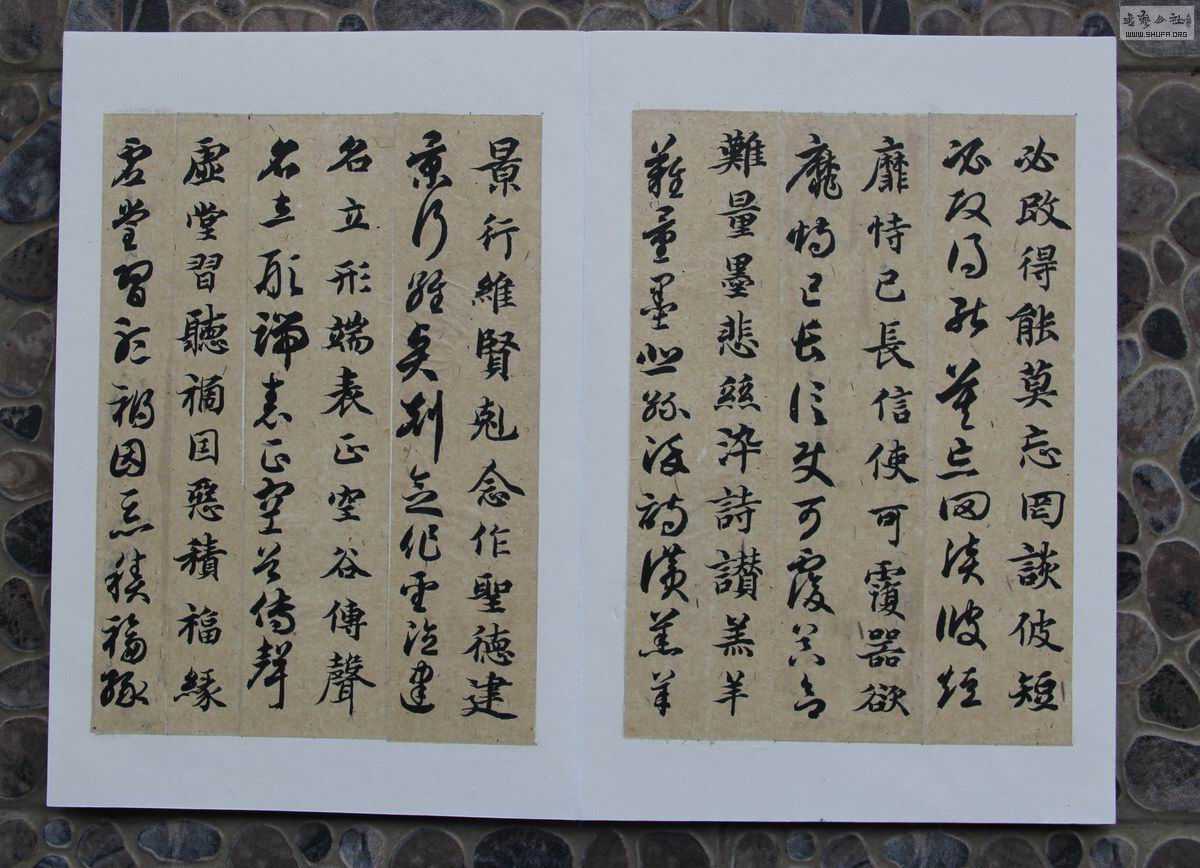 必改得能莫忘罔談彼短
必改得能莫忘罔談彼短
靡恃已長信使可覆器欲
靡恃已長信使可覆器欲
難量墨悲絲染詩讃羔羊
難量墨悲絲染詩讃羔羊
景行維賢剋念作聖德建
景行維賢剋念作聖德建
名立形端表正空谷傳聲
名立形端表正空谷傳聲
虛堂習聽禍因惡積福緣
虛堂習聽禍因惡積福緣
书艺公社
WWW.SHUFA.ORG